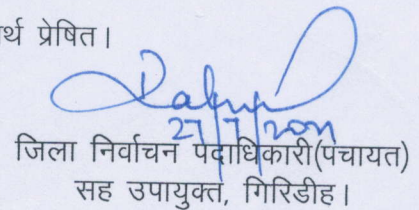 र्थ प्रेषित।
27/7/2011
जिला निर्वाचन पदाधिकारी(पंचायत)
सह उपायुक्त, गिरिडीह।